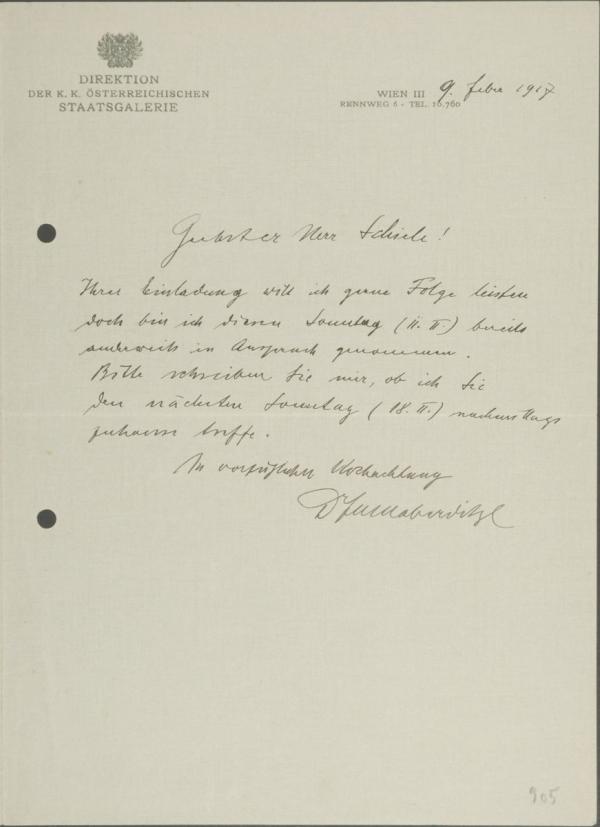 DIREKTION
DER K. K. ÖSTERREICHISCHEN
STAATSGALERIE
WIEN III 9. Feber 1917
RENNWEG 6 - TEL. 10.760
Geehrter Herr Schiele!
Ihrer Einladung will ich gerne Folge leisten
doch bin ich diesen Sonntag (11. II.) bereits
anderweits in Anspruch genommen.
Bitte schreiben Sie mir, ob ich Sie
den nächsten Sonntag (18. II.) nachmittags
zuhause treffe.
In vorzüglicher Hochachtung
Dr FMHaberditzl
905